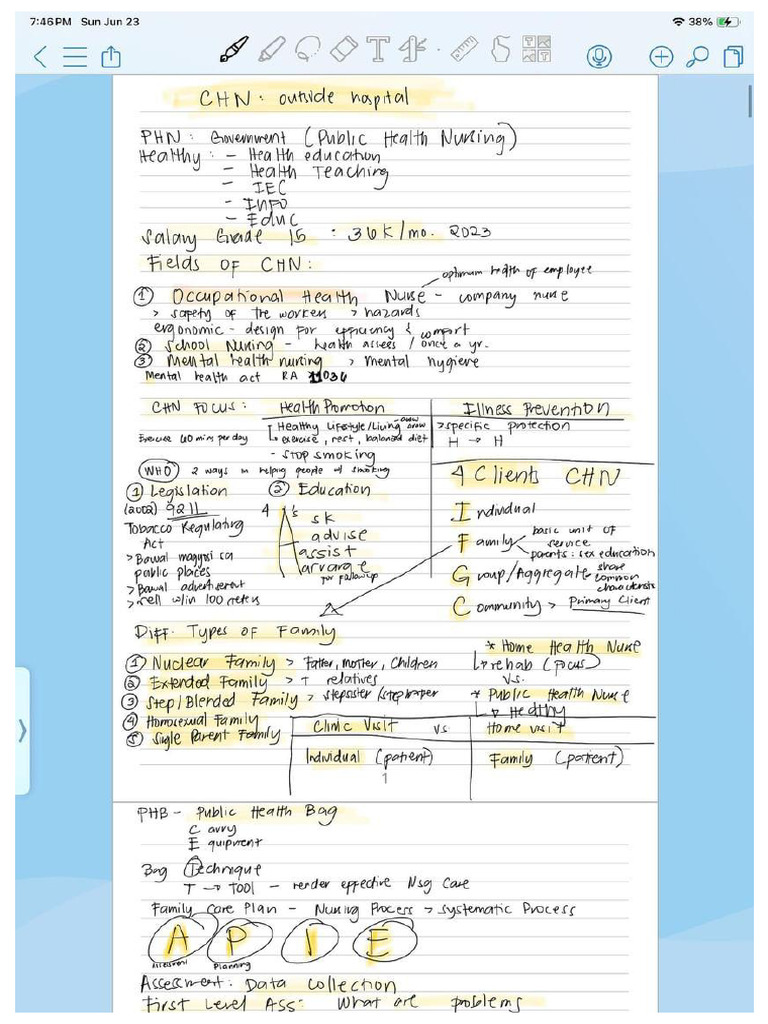 7:46 PM Sun Jun 23
38%
CHN: outside hospital
PHN: Government (Public Health Nursing)
Healthy: - Health education
- Health Teaching
- IEC
- INFO
- Educ
Salary Grade 15 : 36K/mo. 2023
Fields OF CHN:
optimum health of employee
① Occupational Health Nurse - company nurse
> safety of the workers > hazards
ergonomic - design for efficiency & comfort
② School Nursing - health assess / once a yr.
③ Mental health nursing > mental hygiene
Mental health act RA 11036
CHN FOCUS: Health Promotion
Healthy Lifestyle/Living
Exercise 60 mins per day
exercise, rest, balanced diet
- STOP smoking
Illness Prevention
> specific protection
H → H
WHO 2 ways in helping people of smoking
① Legislation
(2002) 9211
Tobacco Regulating
Act
> Bawal magyosi sa
public places
> Bawal advertisement
> sell w/in 100 meters
② Education
4 A's
sk
advise
assist
arrange
for followup
4 Clients CHN
Individual
Family
basic unit of
service
parents: sex education
Group/Aggregate
share
common
characteristic
Community > Primary Client
Diff. Types of Family
① Nuclear Family > Father, mother, Children
② Extended Family > + relatives
③ Step/Blended Family > stepsister/stepbroper
④ Homosexual Family
⑤ Single Parent Family
* Home Health Nurse
↳ rehab (focus)
vs.
* Public Health Nurse
↳ Healthy
Clinic Visit vs Home visit
Individual (patient) Family (patient)
1
PHB - Public Health Bag
Carry
Equipment
Bag Technique
T → TOOL - render effective Nsg Care
Family Care Plan - Nursing Process > systematic Process
A P I E
Assessment Planning
Assessment: Data Collection
First Level Ass: What are problems